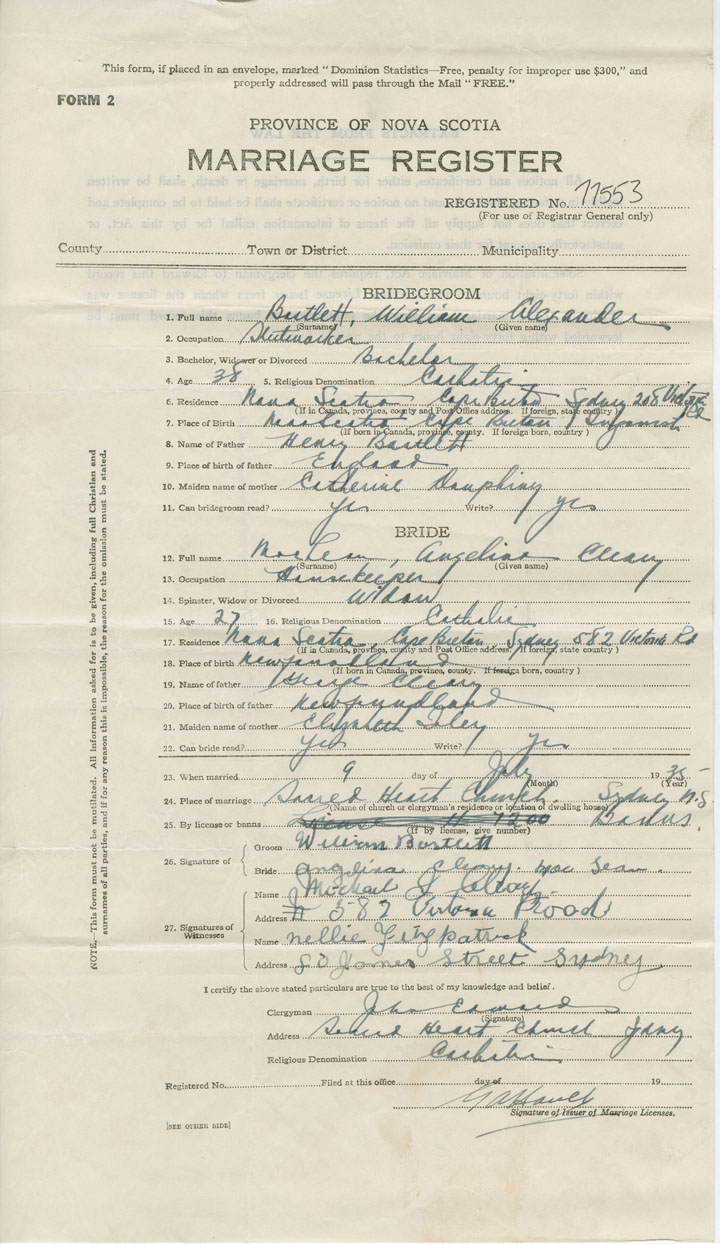 This form, if placed in an envelope, marked "Dominion Statistics—Free, penalty for improper use $300," and
properly addressed will pass through the Mail "FREE."
FORM 2
PROVINCE OF NOVA SCOTIA
MARRIAGE REGISTER
REGISTERED No. 11553
(For use of Registrar General only)
County Town or District Municipality
BRIDEGROOM
1. Full name Bartlett, William Alexander
(Surname) (Given name)
2. Occupation
3. Bachelor, Widower or Divorced Bachelor
4. Age 38 5. Religious Denomination Catholic
6. Residence Nova Scotia Cape Breton Sydney 208 Victoria Rd
(If in Canada, province, county and Post Office address. If foreign, state country)
7. Place of Birth Nova Scotia Cape Breton Ingonish
(If born in Canada, province, county. If foreign born, country)
8. Name of Father Henry Bartlett
9. Place of birth of father England
10. Maiden name of mother Catherine Dauphiny
11. Can bridegroom read? yes Write? yes
BRIDE
12. Full name MacLean, Angelina Cleary
(Surname) (Given name)
13. Occupation Housekeeper
14. Spinster, Widow or Divorced Widow
15. Age 27 16. Religious Denomination Catholic
17. Residence Nova Scotia, Cape Breton, Sydney 582 Victoria Rd
(If in Canada, province, county and Post Office address. If foreign, state country)
18. Place of birth Newfoundland
(If born in Canada, province, county. If foreign born, country)
19. Name of father Cleary
20. Place of birth of father Newfoundland
21. Maiden name of mother Elizabeth
22. Can bride read? Yes Write? Yes
23. When married 9 day of July 1935
(Month) (Year)
24. Place of marriage Sacred Heart Church, Sydney N.S
(Name of church or clergyman's residence or location of dwelling house)
25. By license or banns License # 7200 Banns.
(If by license, give number)
26. Signature of Groom William Bartlett
Bride Angelina Cleary Mac Lean.
27. Signatures of Witnesses
Name Michael J Cleary
Address # 582 Victoria Road
Name Nellie Fitzpatrick
Address James Street Sydney
I certify the above stated particulars are true to the best of my knowledge and belief.
Clergyman John Edward
(Signature)
Address Sacred Heart Church Sydney
Religious Denomination Catholic
Registered No. Filed at this office day of 19
Signature of Issuer of Marriage Licenses.
[SEE OTHER SIDE]
NOTE.—This form must not be mutilated. All information asked for is to be given, including full Christian and
surnames of all parties, and if for any reason this is impossible, the reason for the omission must be stated.